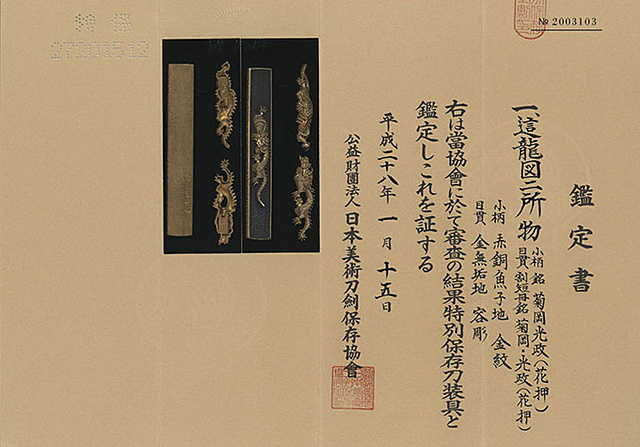 № 2003103
鑑定書
一、這龍図二所物
小柄 銘 菊岡光政(花押)
目貫 割短冊銘 菊岡・光政(花押)
小柄 赤銅魚子地 金紋
目貫 金無垢地 容彫
右は當協會に於て審査の結果特別保存刀装具と
鑑定しこれを証する
平成二十八年 一月 十五日
公益財團法人 日本美術刀劍保存協會